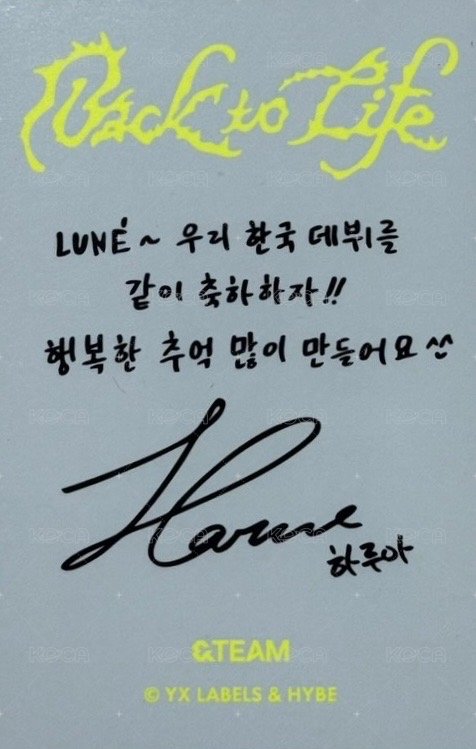 Back to Life
LUNÉ~ 우리 한국 데뷔를
같이 축하하자!!
행복한 추억 많이 만들어요^^
Harua
하루아
&TEAM
© YX LABELS & HYBE